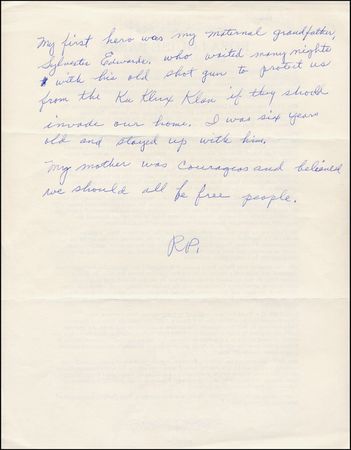 My first hero was my maternal grandfather,
Sylvester Edwards, who waited many nights
with his old shot gun to protect us
from the Ku Klux Klan if they should
invade our home. I was six years
old and stayed up with him.
My mother was courageos and believed
we should all be free people.
RP.